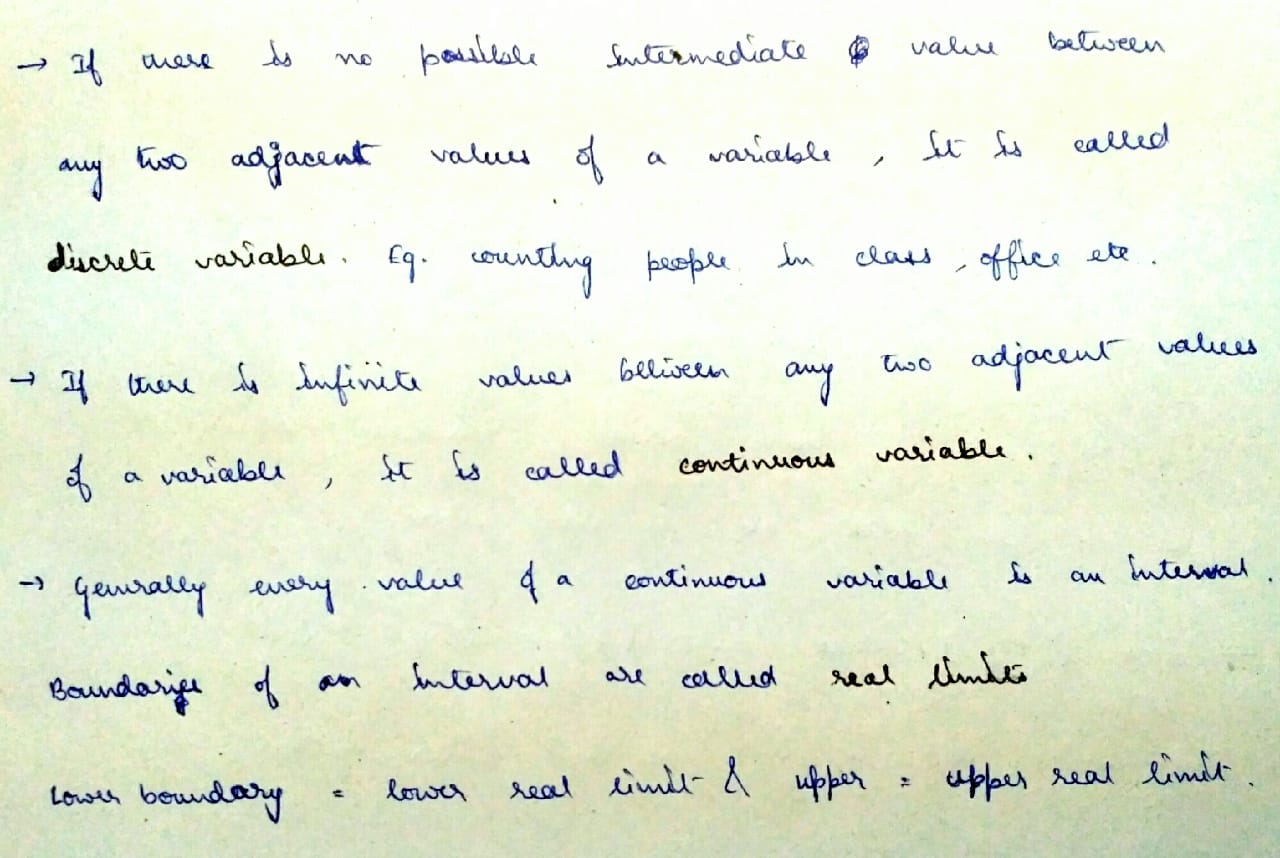 → If there is no possible intermediate value between
any two adjacent values of a variable, it is called
discrete variable. Eg. counting people in class, office etc.
→ If there is infinite values between any two adjacent values
of a variable, it is called continuous variable.
→ Generally every value of a continuous variable is an interval.
Boundaries of an interval are called real limits
Lower boundary = lower real limit & upper = upper real limit.